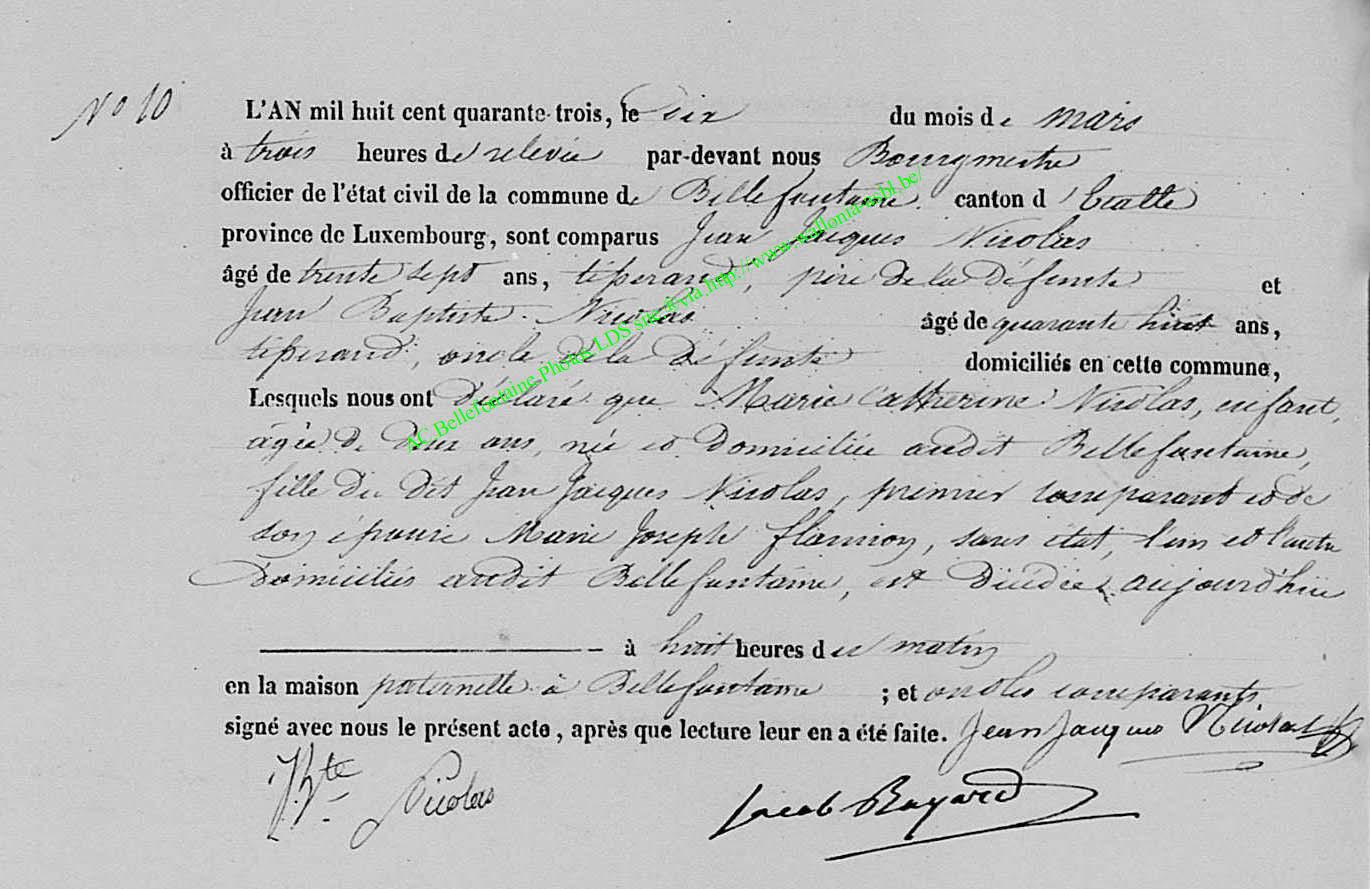 No 10
L'AN mil huit cent quarante-trois, le Dix du mois de mars
à trois heures de relevée par-devant nous Bourgmestre
officier de l'état civil de la commune de Bellefontaine canton d'Etalle
province de Luxembourg, sont comparus Jean Jacques Nicolas
âgé de trente sept ans, tisserand, père de la Défunte et
Jean Baptiste Nicolas âgé de quarante huit ans,
tisserand, oncle de la Défunte domiciliés en cette commune,
Lesquels nous ont Déclaré que Marie Catherine Nicolas, enfant,
âgée de deux ans, née et Domiciliée audit Bellefontaine,
fille du dit Jean Jacques Nicolas, premier comparant et de
son épouse Marie Joseph flamion, sans état, l'un et l'autre
Domiciliés audit Bellefontaine, est Décédée aujourd'hui
à huit heures du matin
en la maison paternelle à Bellefontaine ; et ont les comparants
signé avec nous le présent acte, après que lecture leur en a été faite. Jean Jacques Nicolas
J. Bte Nicolas
Jacob Bayard
AC Bellefontaine Photos LDS via http://www.wallonia-asbl.be/